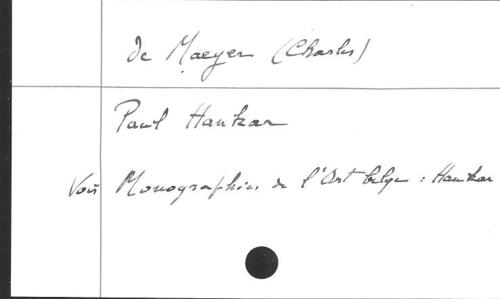 De Maeyer (Charles)
Paul Hankar
Voir Monographies de l'Art belge : Hankar